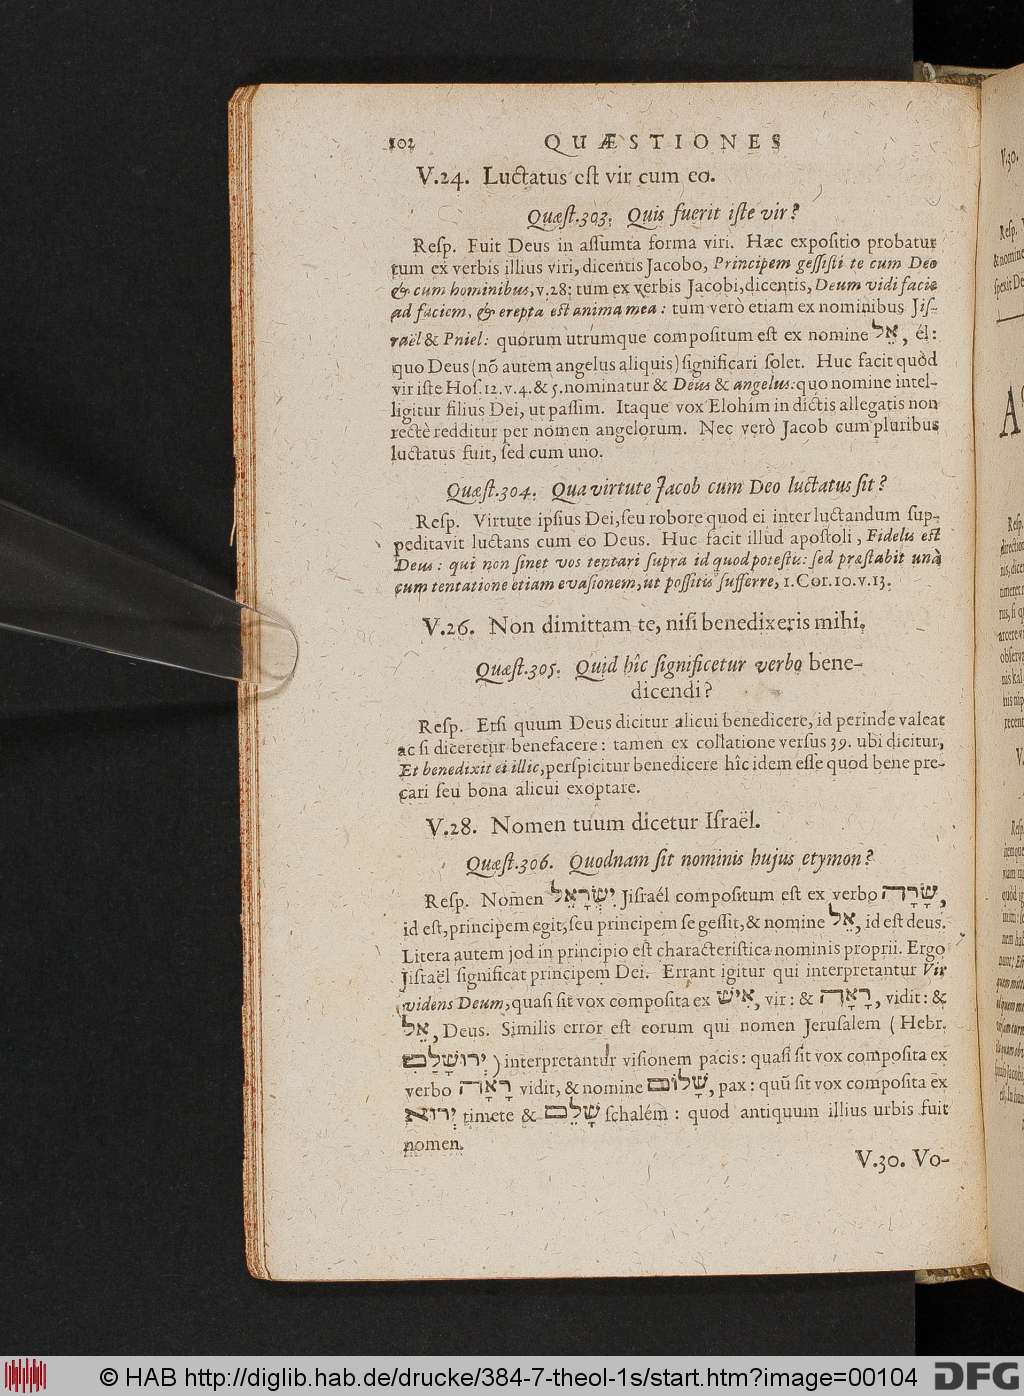 102 QUÆSTIONES
V.24. Luctatus eſt vir cum eo.
Quæſt.303. Quis fuerit iſte vir?
Reſp. Fuit Deus in aſſumta forma viri. Hæc expoſitio probatur
tum ex verbis illius viri, dicentis Jacobo, Principem geſſiſti te cum Deo
& cum hominibus, v.28: tum ex verbis Jacobi, dicentis, Deum vidi facie
ad faciem, & erepta eſt anima mea: tum verò etiam ex nominibus Jiſ-
raël & Pniel: quorum utrumque compoſitum eſt ex nomine אֵל, él:
quo Deus (nō autem angelus aliquis) ſignificari ſolet. Huc facit quòd
vir iſte Hoſ.12.v.4.& 5.nominatur & Deus & angelus: quo nomine intel-
ligitur filius Dei, ut paſſim. Itaque vox Elohim in dictis allegatis non
rectè redditur per nomen angelorum. Nec verò Jacob cum pluribus
luctatus fuit, ſed cum uno.
Quæſt.304. Qua virtute Jacob cum Deo luctatus ſit?
Reſp. Virtute ipſius Dei, ſeu robore quod ei inter luctandum ſup-
peditavit luctans cum eo Deus. Huc facit illud apoſtoli, Fidelis eſt
Deus: qui non ſinet vos tentari ſupra id quod poteſtis: ſed præſtabit unà
cum tentatione etiam evaſionem, ut poſſitis ſufferre, 1.Cor.10.v.13.
V.26. Non dimittam te, niſi benedixeris mihi.
Quæſt.305. Quid hîc ſignificetur verbo bene-
dicendi?
Reſp. Etſi quum Deus dicitur alicui benedicere, id perinde valeat
ac ſi diceretur benefacere: tamen ex collatione verſus 39. ubi dicitur,
Et benedixit ei illic, perſpicitur benedicere hîc idem eſſe quod bene pre-
cari ſeu bona alicui exoptare.
V.28. Nomen tuum dicetur Iſraël.
Quæſt.306. Quodnam ſit nominis hujus etymon?
Reſp. Nomen יִשְׂרָאֵל Jiſraél compoſitum eſt ex verbo שָׂרָה,
id eſt, principem egit, ſeu principem ſe geſſit, & nomine אֵל, id eſt deus.
Litera autem jod in principio eſt characteriſtica nominis proprii. Ergo
Jiſraël ſignificat principem Dei. Errant igitur qui interpretantur Vir
videns Deum, quaſi ſit vox compoſita ex אִישׁ, vir: & רָאָה, vidit: &
אֵל, Deus. Similis error eſt eorum qui nomen Jeruſalem (Hebr.
יְרוּשָׁלַםִ) interpretantur viſionem pacis: quaſi ſit vox compoſita ex
verbo רָאָה vidit, & nomine שָׁלוֹם, pax: quū ſit vox compoſita ex
יְרוּא timete & שָׁלֵם ſchalém: quod antiquum illius urbis fuit
nomen.
V.30. Vo-
© HAB http://diglib.hab.de/drucke/384-7-theol-1s/start.htm?image=00104
DFG